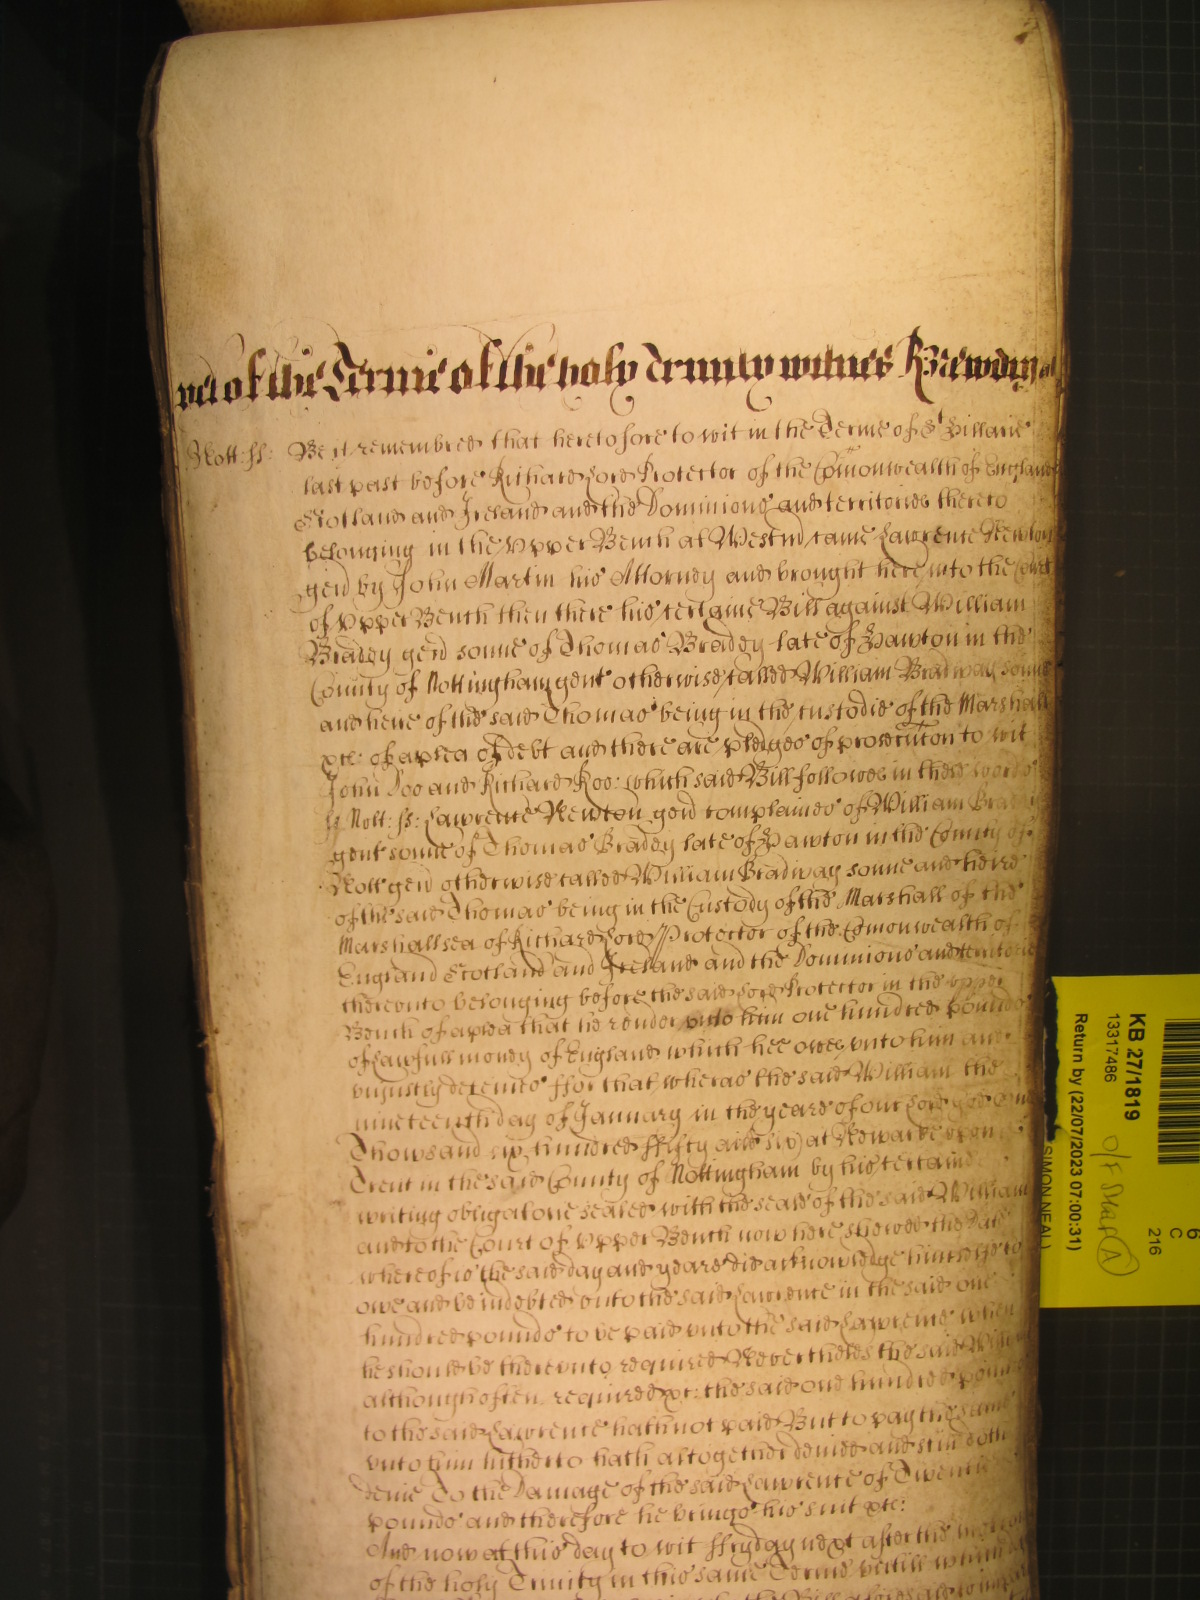 yet of the Terme of the holy Trinity witnes R: Newdigat
Nott: ss: Be it remembred that heretofore to wit in the Terme of St Hillarie
last past before Richard Lord Protector of the Comonwealth of England
Scotland and Ireland and the Dominions and territories thereto
belonging in the Vpper Bench at Westmr came Lawrence Newton
gent by John Martin his Attorney and brought here into the Court
of Vpper Bench then there his certaine Bill against William
Bradey gent sonne of Thomas Bradey late of Hawton in the
County of Nottingham gent otherwise called William Bradway sonne
and heire of the said Thomas being in the custodie of the Marshall
xte: of a plea of debt and there are pledges of prosecution to wit
John Doo and Richard Roo: which said Bill followes in these words
ss Nott: ss: Lawrence Newton gent complaines of William Bradey
gent sonne of Thomas Bradey late of Hawton in the County of
Nott gent otherwise called William Bradway sonne and heire
of the said Thomas being in the Custody of the Marshall of the
Marshallsea of Richard Lord Protector of the Comonwealth of
England Scotland and Ireland and the Dominions and territories
therevnto belonging before the said Lord Protector in the vpper
Bench of a plea that he render vnto him one hundred pounds
of lawfull money of England which hee owes vnto him and
vniustly deteines ffor that wheras the said William the
nineteenth day of January in the yeare of our Lord god One
Thowsand six hundred ffifty and six at Newarke vpon
Trent in the said County of Nottingham by his certaine
writing obligatorie sealed with the seale of the said William
and to the Court of Vpper Bench now here shewed the date
whereof is the said day and yeare did acknowledge himselfe to
owe and be indebted vnto the said Lawrence in the said one
hundred pounds to be paid vnto the said Lawrence when
he should be therevnto required Neverthelesse the said William
although often required xte: the said one hundred pounds
to the said Lawrence hath not paid But to pay the same
vnto him hitherto hath altogether denied and still doth
denie To the Damage of the said Lawrence of Twentie
pounds and therefore he brings his suit xte:
And now at this day to wit ffryday next after the morrow
of the holy Trinity in this same Terme vntill which
the Bill aforesaid to imparle
KB 27/1819
13317486
Return by (22/07/2023 07:00:31)
SIMON NEAL)
O/F Shelf A
6
C
216